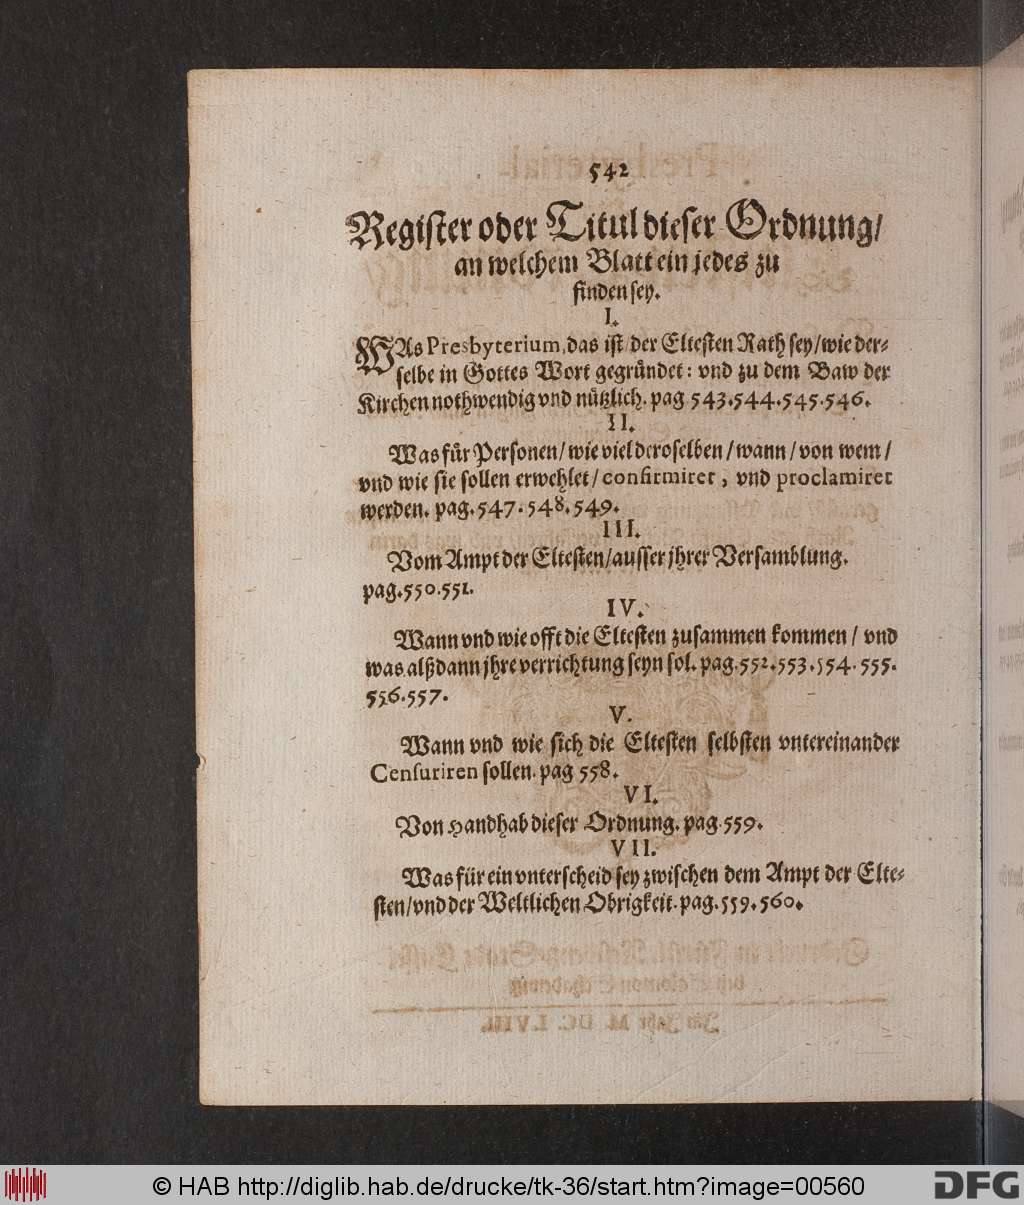 542
Register oder Titul dieser Ordnung/
an welchem Blatt ein jedes zu
finden sey.
I.
WAs Presbyterium, das ist/ der Eltesten Rath sey/ wie der-
selbe in Gottes Wort gegründet: vnd zu dem Baw der
Kirchen nothwendig vnd nützlich. pag 543.544.545.546.
II.
Was für Personen/ wie viel deroselben/ wann/ von wem/
vnd wie sie sollen erwehlet/ confirmiret, vnd proclamiret
werden. pag. 547. 548. 549.
III.
Vom Ampt der Eltesten/ ausser jhrer Versamblung.
pag. 550.551.
IV.
Wann vnd wie offt die Eltesten zusammen kommen/ vnd
was alßdann jhre verrichtung seyn sol. pag. 552.553.554.555.
556.557.
V.
Wann vnd wie sich die Eltesten selbsten vntereinander
Censuriren sollen. pag 558.
VI.
Von Handhab dieser Ordnung. pag. 559.
VII.
Was für ein vnterscheid sey zwischen dem Ampt der Elte-
sten/ vnd der Weltlichen Obrigkeit. pag. 559.560.
© HAB http://diglib.hab.de/drucke/tk-36/start.htm?image=00560
DFG